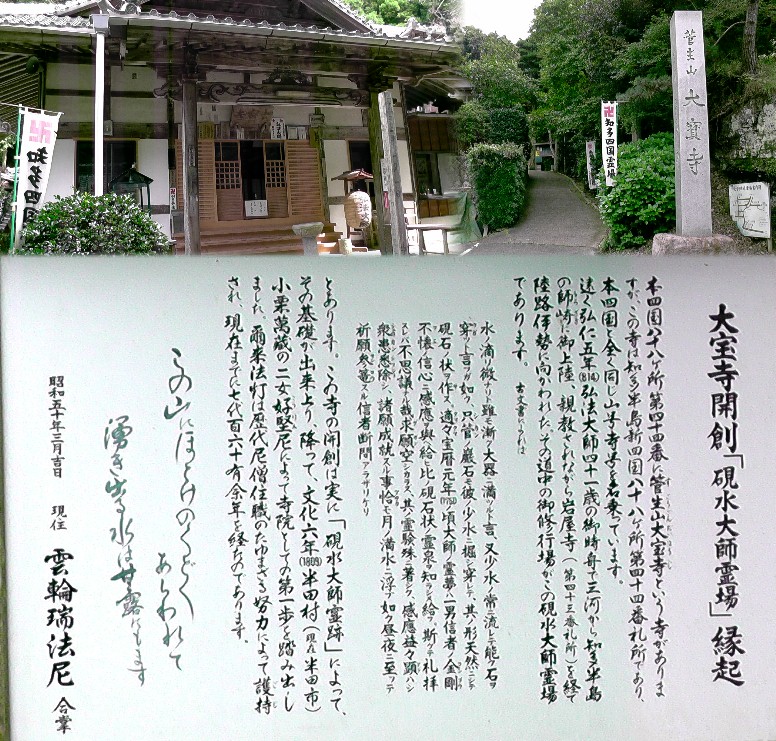 知多四国
菅生山 大寳寺
知多四国霊場
大宝寺開創「硯水大師霊場」縁起
本四国八十八ヶ所第四十四番に菅生山大宝寺という寺がありま
すが、この寺は知多半島新四国八十八ヶ所第四十四番札所であり、
本四国と全く同じ山号寺号を名乗っています。
遠く弘仁五年(814)弘法大師四十一歳の御時舟で三河から知多半島
の師崎に御上陸、親教されながら岩屋寺(第四十三番札所)を経て
陸路伊勢に向かわれた、その道中の御修行場がこの硯水大師霊場
であります。
古文書によれば
水ノ滴リ微ナリト雖モ漸ク大器ニ満ツルト言、又少水ノ常ニ流レテ能ク石ヲ
穿ツト言フガ如ク、只管ニ巌石モ彼ノ少水ニ掘シ穿レテ、其ノ形天然ニシテ
硯石ノ状ヲ作ス、適々宝暦元年(1751)ノ頃大師ノ霊夢ハ一男信者ノ金剛
不懐ノ信心ニ感應ヲ與ヘ給ヒ比ノ硯石状ノ霊泉ヲ知ラシメ給フ、斯クテ礼拝
スレバ不思議ナル哉求願空シカラズ、其ノ霊験殊ニ著シク、感應益々顕ハシ
衆患悉除シ、諸願成就スル事恰モ月ノ満水ニ浮ブ如ク昼夜ニ至ッテ
祈願参篭スル信者断間アラザリケリ
とあります。この寺の開創は実に「硯水大師霊跡」によって、
その基礎が出来上り、降って、文化六年(1809)半田村(現在半田市)
小栗萬蔵の二女好堅尼によって寺院としての第一歩を踏み出し
ました、爾来法灯は歴代尼僧住職のたゆまざる努力によって護持
され、現在までに七代百六十有余年を経ちのであります。
この山にほとけのくどく
あらわれて
湧き出る水は甘露にもます
昭和五十年三月吉日 現住 雲輪瑞法尼 合掌